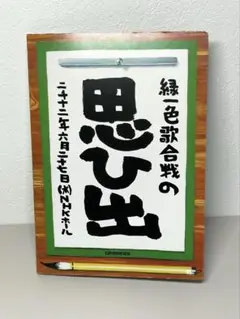 緑一色歌合戦の
思ひ出
二十二年六月二十七日(水)NHKホール